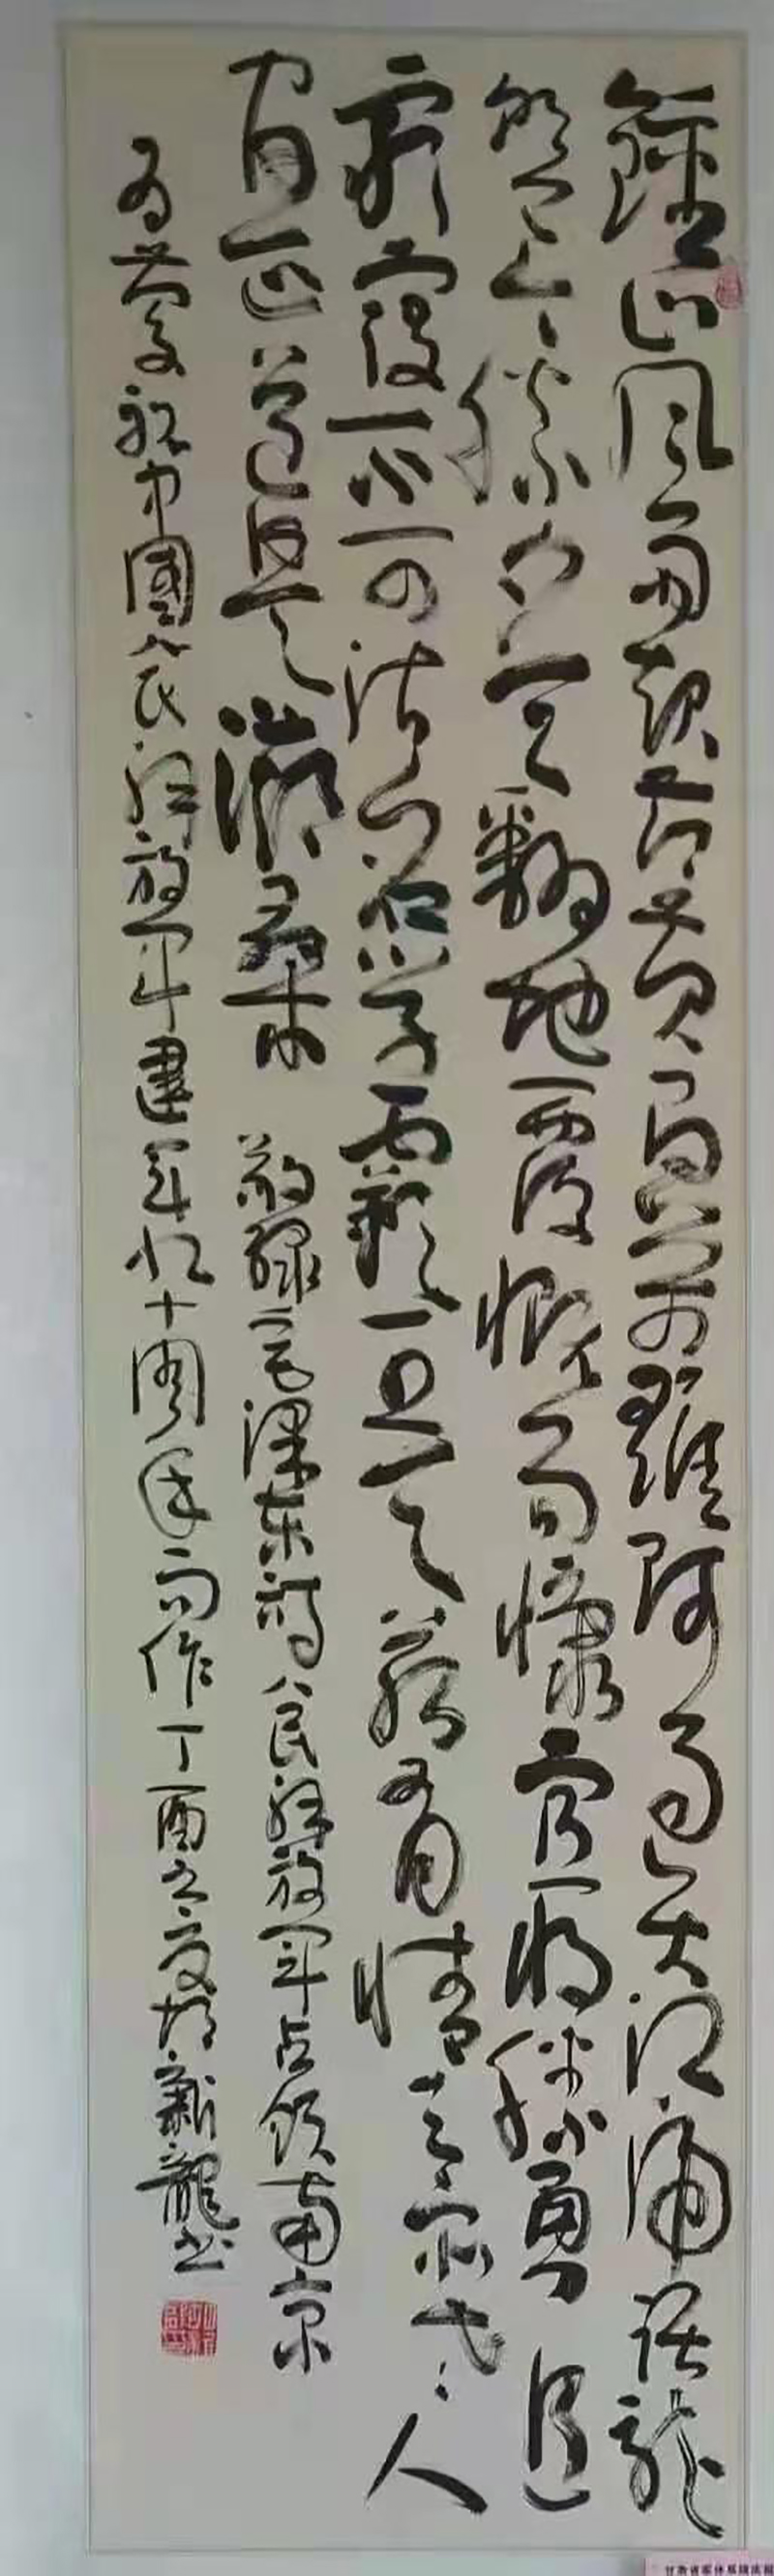 鍾山風雨起蒼黃百萬雄師過大江虎踞龍
盤今勝昔天翻地覆慨而慷宜將勝勇追
窮寇不可沽名學霸王天若有情天亦老人
間正道是滄桑 敬録毛澤東詩人民解放軍占領南京
为慶祝中國人民解放軍建軍九十周年而作丁酉之夏新龍书